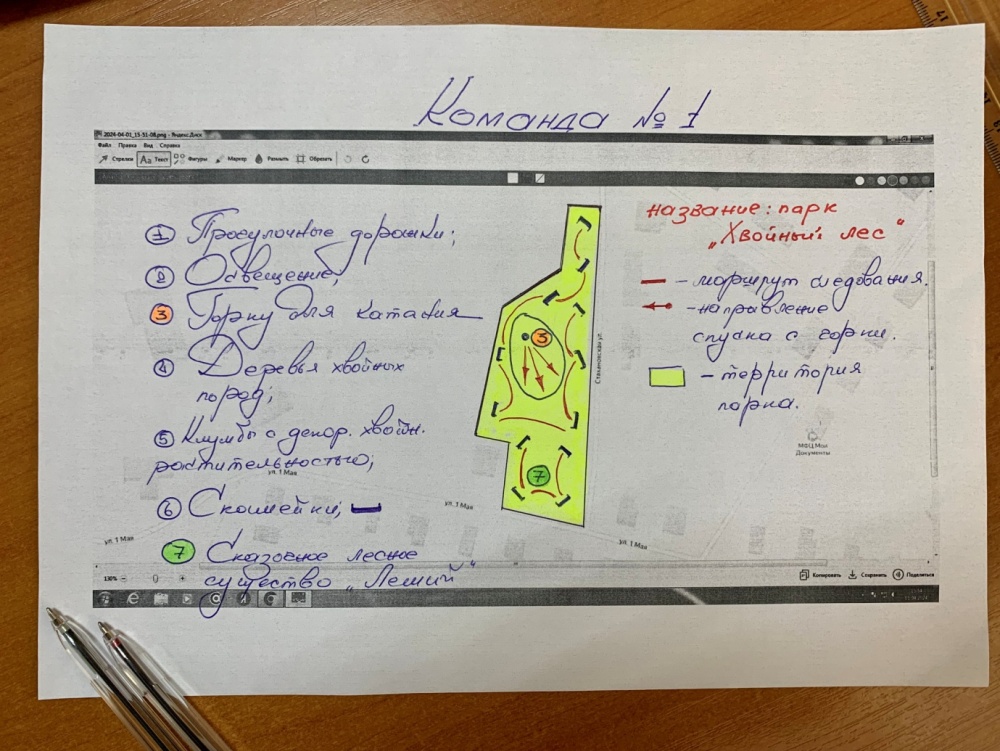 Команда № 1
2024-04-01_15-51-08.png - Яндекс.Диск
Файл Правка Вид Справка
Стрелки Aa Текст Фигуры Маркер Размыть Обрезать
① Прогулочные дорожки;
② Освещение;
③ Горку для катания
④ Деревья хвойных
пород;
⑤ Клумбы с декор. хвойн.
растительностью;
⑥ Скамейки;
⑦ Сказочное лесное
существо „Леший"
3
7
Стахановская ул.
ул. 1 Мая
ул. 1 Мая
ул. 1 Мая
ул. 1 Мая
название: парк
„Хвойный лес"
– маршрут следования.
– направление
спуска с горки.
– территория
парка.
МФЦ Мои
Документы
130%
Копировать Сохранить Поделиться